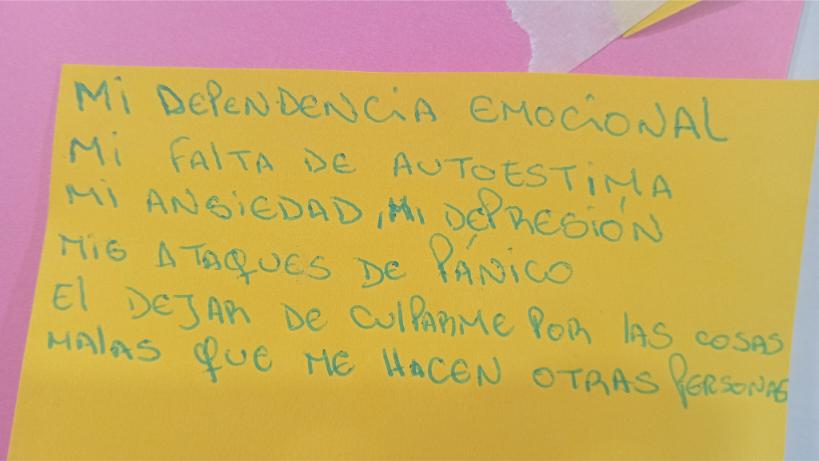 Mi DEPENDENCiA EMOCiONAL
Mi FAlTA DE AUTOESTiMA
Mi ANSiEDAD, Mi DEPRESiÓN
MiS ATAQUES DE PÁNiCO
El DEJAR DE CUlPARME POR lAS COSAS
MAlAS QUE ME HACEN OTRAS PERSONAS